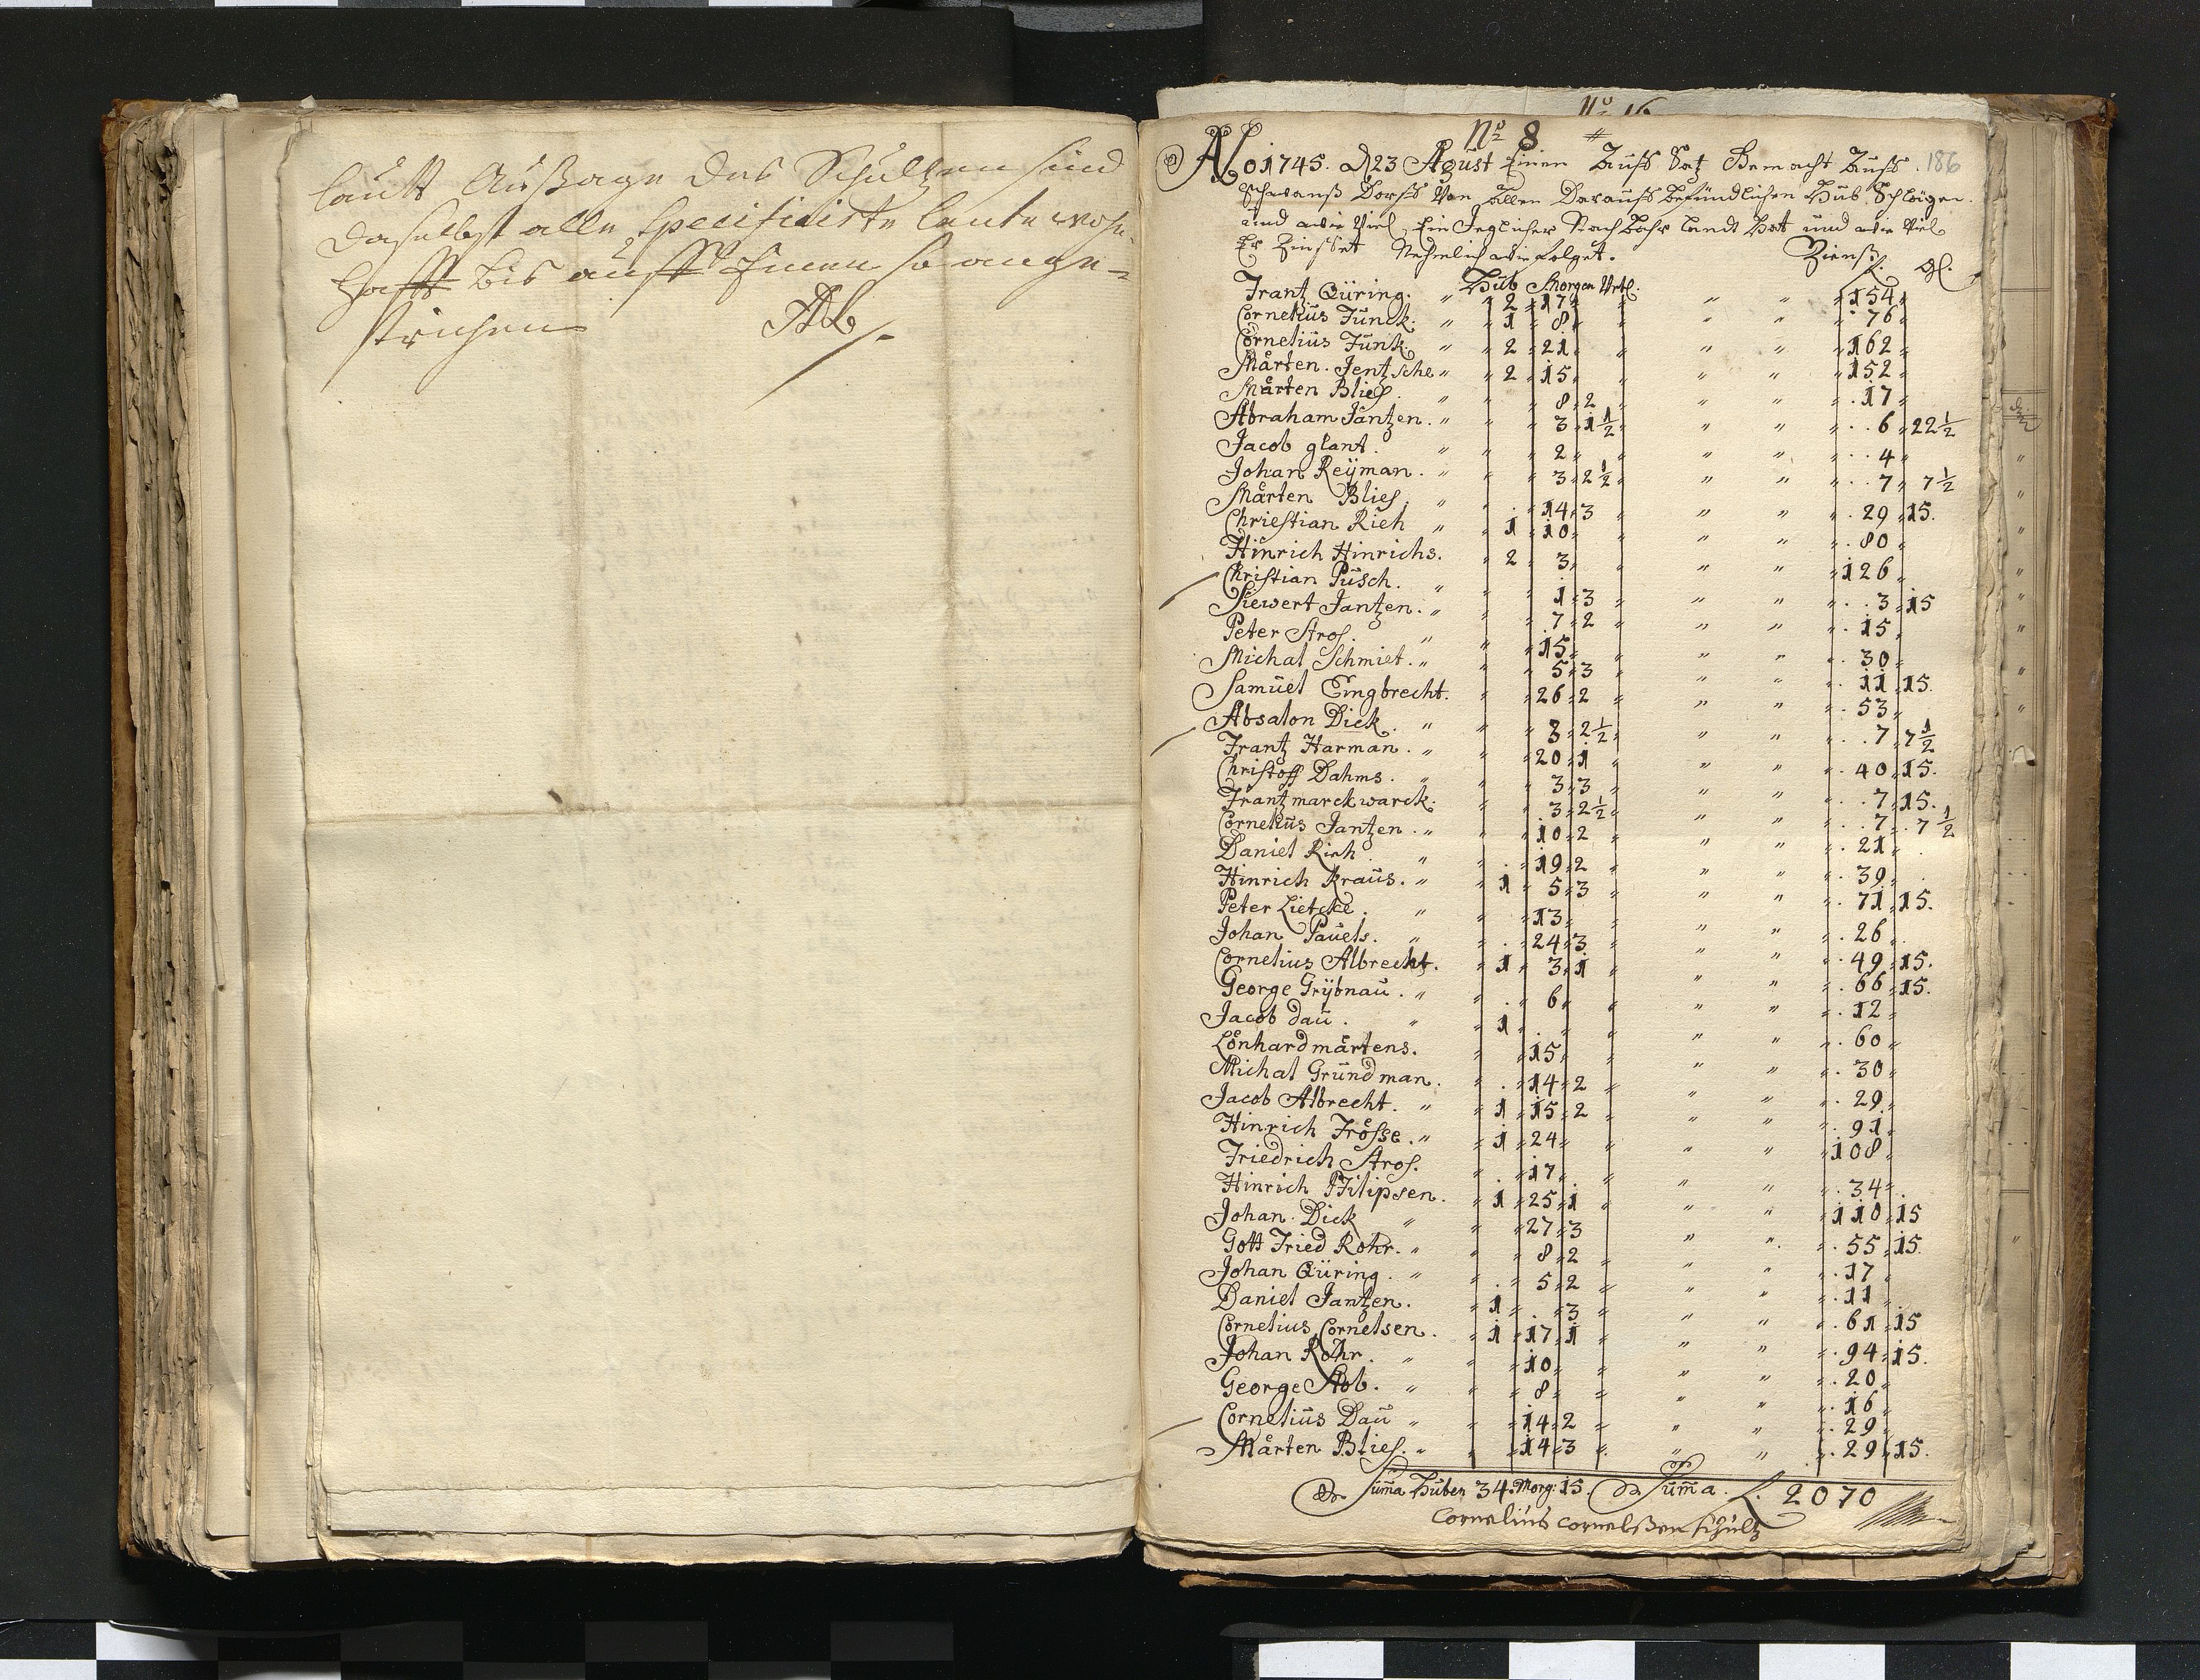 lautt Außage des Schultzen sind
daselbst alle specificirte leute wohn-
hafft bis auff Jnen so ange-
strichen

No 16
No 8
186
Ao 1745. d 23 Agust Einen Auffs Satz Gemacht Auffs
Schwans Dorff Von allen Darauff befindlichen Hub Schlägen
und wie Viel Ein Jeglicher Nachbahr landt Hat und wie Viel
Er Zinsset Nehmlich wie folget.
Zienß
Hub Morgen Vrtl. fl. gl.
Frantz Qüring. 2 17 154
Cornelius Funck. 1 8 76
Cornelius Funk. 2 21 162
Mårten Jentsche 2 15 152
Mårten Blies 8 2 17
Abraham Jantzen. 3 1½ 6 22½
Jacob glant. 2 4
Johan Reÿman. 3 2½ 7 7½
Mårten Blies. 14 3 29 15.
Chriestian Rieh 1 10 80
Hinrich Hinrichs. 2 3 126
Christian Püsch. 1 3 3 15
Siewert Jantzen. 7 2 15
Peter Stros. 15 30
Michal Schmiet. 5 3 11 15.
Samüel Eingbrecht. 26 2 53
Absalon Dick. 3 2½ 7 7½
Frantz Harman. 20 1 40 15.
Christoff Dahms. 3 3 7 15.
Frantz marckwarck. 3 2½ 7 7½
Cornelius Jantzen. 10 2 21
Daniel Rieh 19 2 39
Hinrich Kraüs. 1 5 3 71 15.
Peter Lietcke. 13 26
Johan Pauels. 24 3 49 15.
Cornelius Albrecht. 1 3 1 66 15.
George Grÿbnau. 6 12
Jacob daü. 1 60
Lönhard mårtens. 15 30
Michal Gründman. 14 2 29
Jacob Albrecht. 1 15 2 91
Hinrich Frösse. 1 24 108
Friedrich Stros. 17 34
Hinrich Filipsen. 1 25 1 110 15
Johan Dick 27 3 55 15
Gott Fried Rohr. 8 2 17
Johan Qüring. 5 2 11
Daniel Jantzen. 1 3 61 15
Cornelius Cornelsen. 1 17 1 94 15.
Johan Rohr. 10 20
George Stob. 8 16
Cornelius Daü 14 2 29
Mårten Blies. 14 3 29 15.
Suma Huben 34 Morg: 15. Suma. f. 2070
Cornelius cornelßen schultz